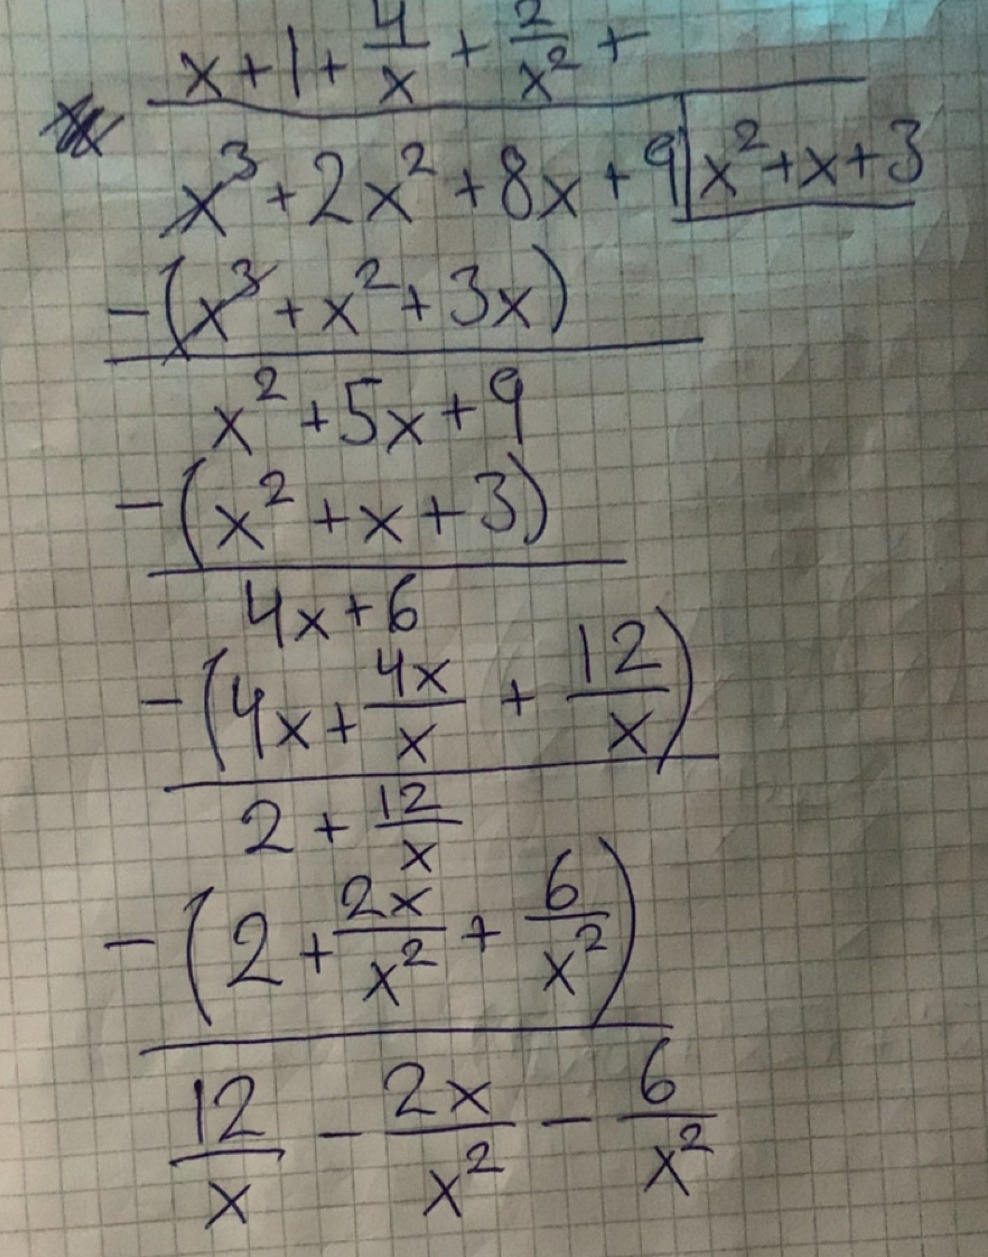 x + 1 + 4/x + 2/x² +
x³ + 2x² + 8x + 9 | x² + x + 3
-(x³ + x² + 3x)
x² + 5x + 9
-(x² + x + 3)
4x + 6
-(4x + 4x/x + 12/x)
2 + 12/x
-(2 + 2x/x² + 6/x²)
12/x - 2x/x² - 6/x²